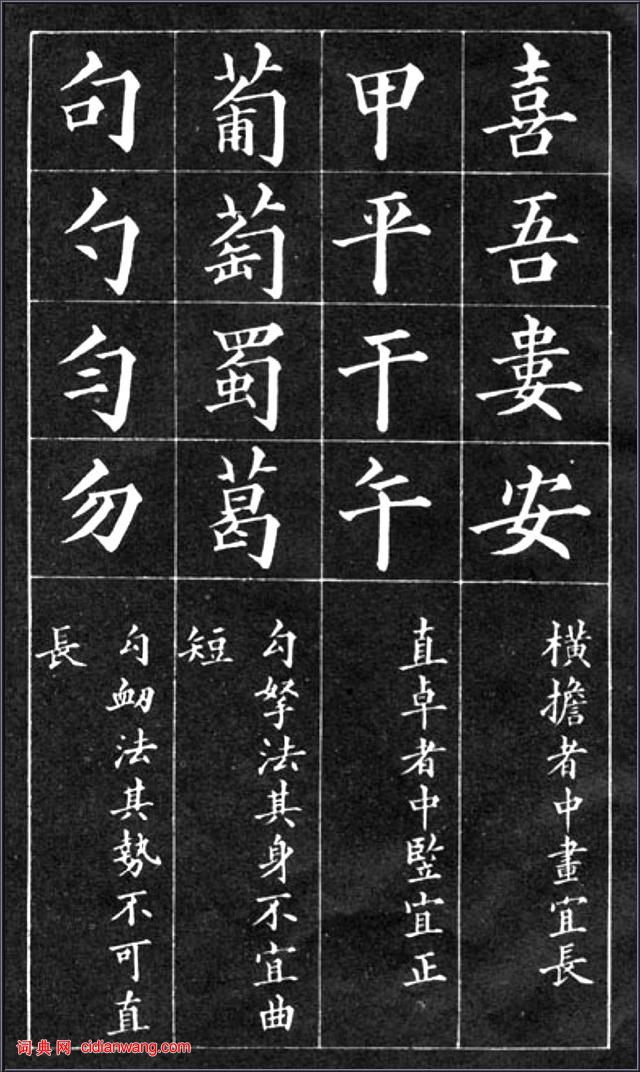 喜吾婁安
橫擔者中畫宜長
甲平干午
直卓者中竪宜正
葡萄蜀葛
勾拏法其身不宜曲
短
句勺匀勿
勾衂法其勢不可直
長
词典网 cidianwang.com